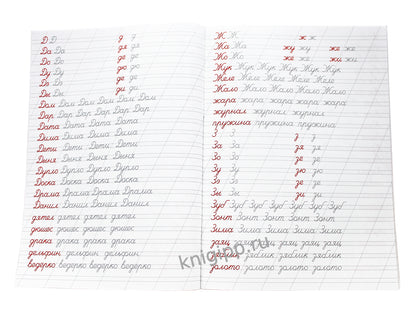 Д Д д д
Да Да дя дя
До До де де
Ду Ду дю дю
Де Де де де
Ды Ды ди ди
Дом Дом Дом Дом Дом
Дар Дар Дар Дар Дар
Дата Дата Дата Дата
Дима Дима Дима Дима
Дети Дети Дети Дети
Дыня Дыня Дыня Дыня
Дупло Дупло Дупло Дупло
Доска Доска Доска Доска
Драма Драма Драма Драма
Данил Данил Данил Данил
дятел дятел дятел дятел
дюшес дюшес дюшес дюшес
драка драка драка драка
дельфин дельфин дельфин
ведёрко ведёрко ведёрко ведёрко
Ж Ж ж ж
Жа Жа жу жу же же
Жо Жо же же жи жи
Жук Жук Жук Жук Жук Жук
Желе Желе Желе Желе Желе
Жало Жало Жало Жало Жало
жара жара жара жара жара
журнал журнал журнал журнал
пружина пружина пружина пружина
З З з з
За За зя зя
Зо Зо зе зе
Зу Зу зю зю
Зэ Зэ зе зе
Зы Зы зи зи
Зуб Зуб Зуб Зуб Зуб Зуб
Зонт Зонт Зонт Зонт Зонт
Зима Зима Зима Зима Зима
заяц заяц заяц заяц заяц
зяблик зяблик зяблик зяблик
золото золото золото золото
knigipp.ru